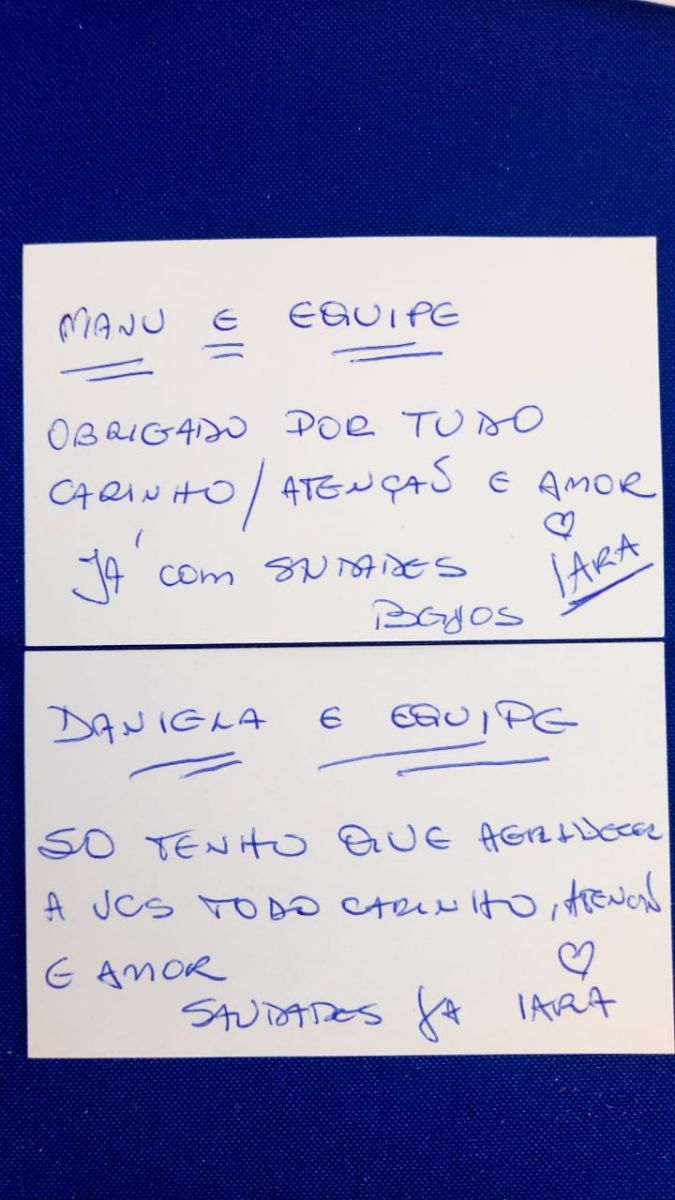 MANU E EQUIPE
OBRIGADO POR TUDO
CARINHO / ATENÇAÕ E AMOR
JÁ COM SAUDADES IARA
BEIJOS
DANIELA E EQUIPE
SO TENHO QUE AGRADECER
A VCS TODO CARINHO, ATENCAÕ
E AMOR
SAUDADES JA IARA